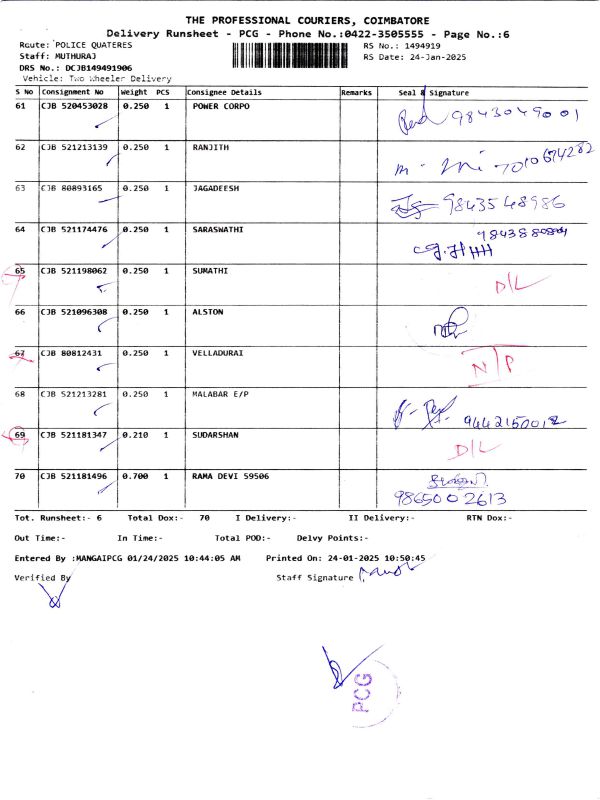 THE PROFESSIONAL COURIERS, COIMBATORE
Delivery Runsheet - PCG - Phone No.:0422-3505555 - Page No.:6
Route: POLICE QUATERES RS No.: 1494919
Staff: MUTHURAJ RS Date: 24-Jan-2025
DRS No.: DCJB149491906
Vehicle: Two Wheeler Delivery
S No Consignment No Weight PCS Consignee Details Remarks Seal & Signature
61 CJB 520453028 0.250 1 POWER CORPO 9843049001
62 CJB 521213139 0.250 1 RANJITH 7010674282
63 CJB 80893165 0.250 1 JAGADEESH 9843548986
64 CJB 521174476 0.250 1 SARASWATHI
65 CJB 521198062 0.250 1 SUMATHI D/L
66 CJB 521096308 0.250 1 ALSTON
67 CJB 80812431 0.250 1 VELLADURAI N/P
68 CJB 521213281 0.250 1 MALABAR E/P 9442150012
69 CJB 521181347 0.210 1 SUDARSHAN D/L
70 CJB 521181496 0.700 1 RAMA DEVI 59506 9865002613
Tot. Runsheet:- 6 Total Dox:- 70 I Delivery:- II Delivery:- RTN Dox:-
Out Time:- In Time:- Total POD:- Delvy Points:-
Entered By :MANGAIPCG 01/24/2025 10:44:05 AM Printed On: 24-01-2025 10:50:45
Verified By Staff Signature
PCG